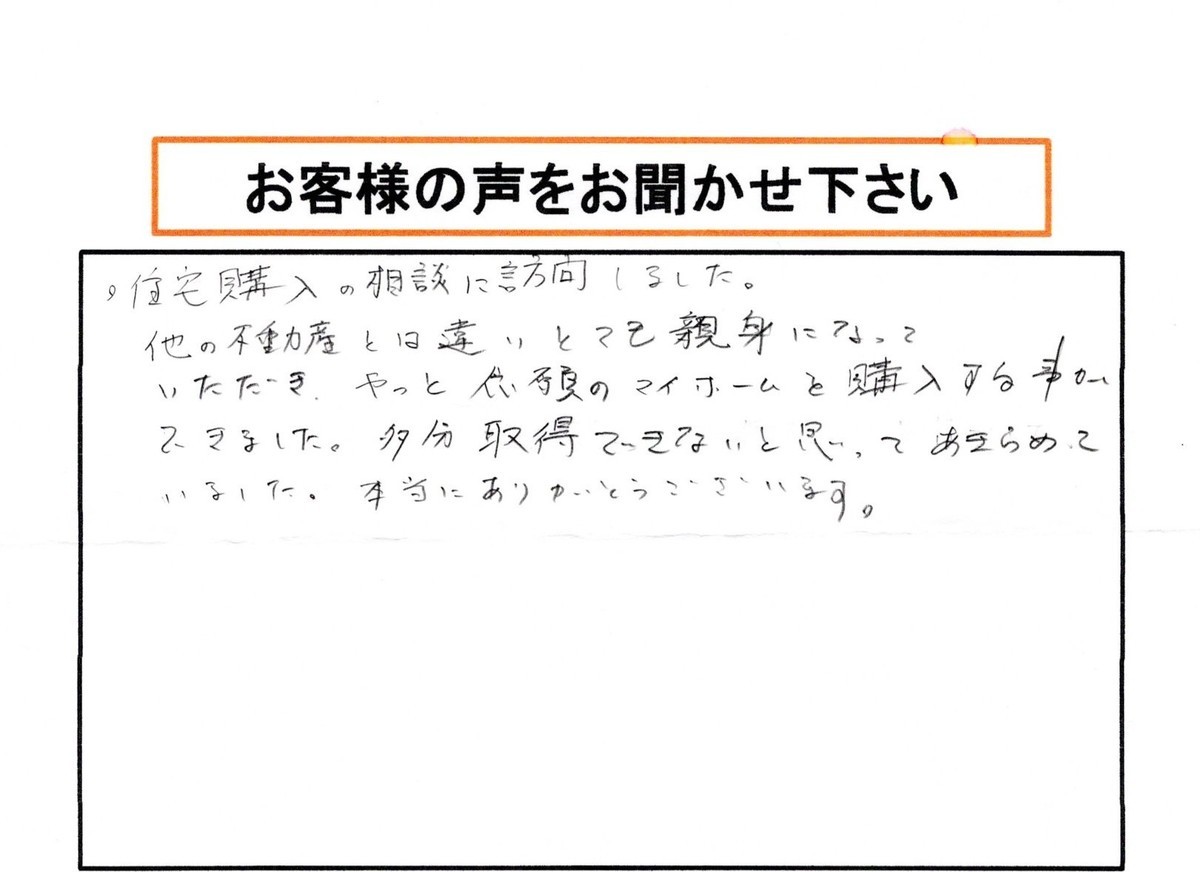 お客様の声をお聞かせ下さい
。住宅購入の相談に訪問しました。
他の不動産とは違いとても親身になって
いただき、やっと念願のマイホームを購入する事が
できました。多分取得できないと思ってあきらめて
いました。本当にありがとうございます。